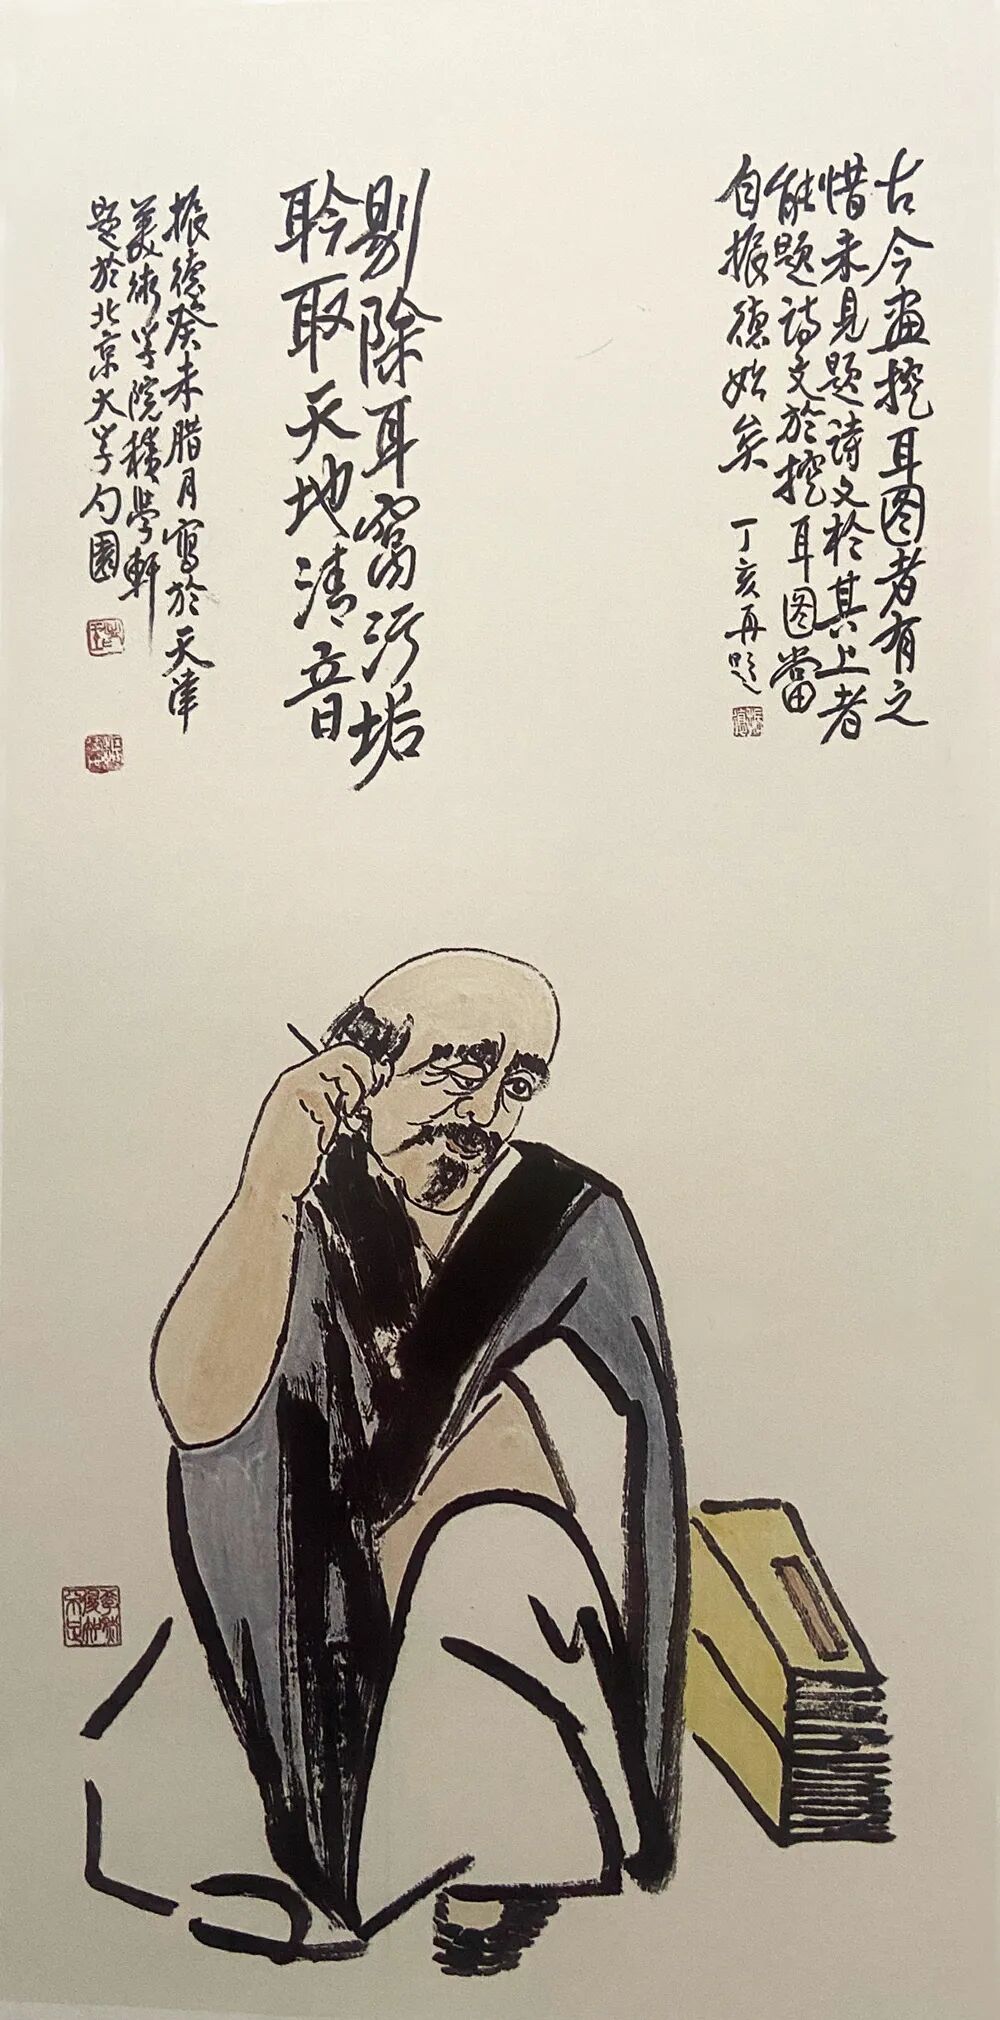 古今画挖耳图者有之
惜未見题诗文於其上者
能题诗文於挖耳图當
自振德始矣
丁亥再题
剔除耳窝污垢
聆取天地清音
振德癸未腊月寫於天津
美術学院積學軒
题於北京大学勺園